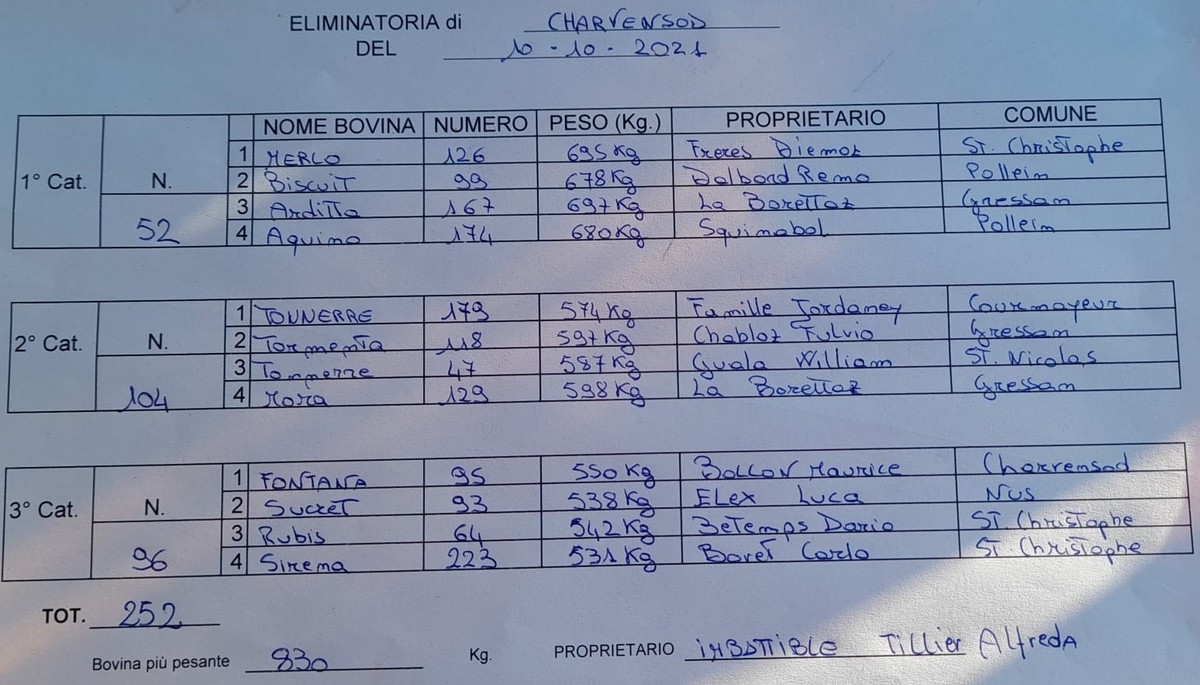 ELIMINATORIA di CHARVENSOD
DEL 10-10-2021
NOME BOVINA NUMERO PESO (Kg.) PROPRIETARIO COMUNE
1° Cat. N. 52
1 MERLO 126 695 Kg Freres Diemoz ST. Christophe
2 Biscuit 99 678 Kg Dalbard Remo Pollein
3 Arditta 167 697 Kg La Borettaz Gressan
4 Aquino 174 680 Kg Squinabol Pollein
2° Cat. N. 104
1 TONNERRE 179 574 Kg Famille Jordaney Courmayeur
2 Tormenta 118 597 Kg Chabloz Fulvio Gressan
3 Tonnerre 47 587 Kg Guala William ST. Nicolas
4 Mora 129 598 Kg La Borettaz Gressan
3° Cat. N. 96
1 FONTANA 95 550 Kg Bollon Maurice Charvensod
2 Sucret 93 538 Kg ELex Luca Nus
3 Rubis 64 542 Kg BeTemps Dario ST. Christophe
4 Sirena 223 531 Kg Boret Carlo ST. Christophe
TOT. 252
Bovina più pesante 830 Kg. PROPRIETARIO Tillier AlfredA